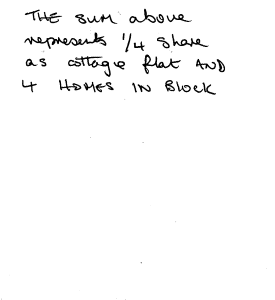 THE SUM above
represents 1/4 share
as cottage flat AND
4 HOMES IN BLOCK